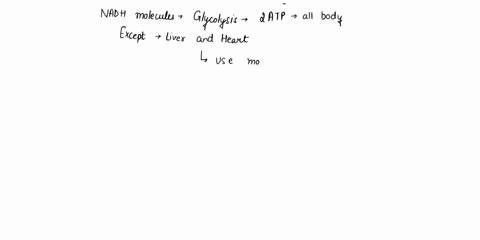 NADH molecules → Glycolysis → 2ATP → all body
Except → Liver and Heart
↳ use mo